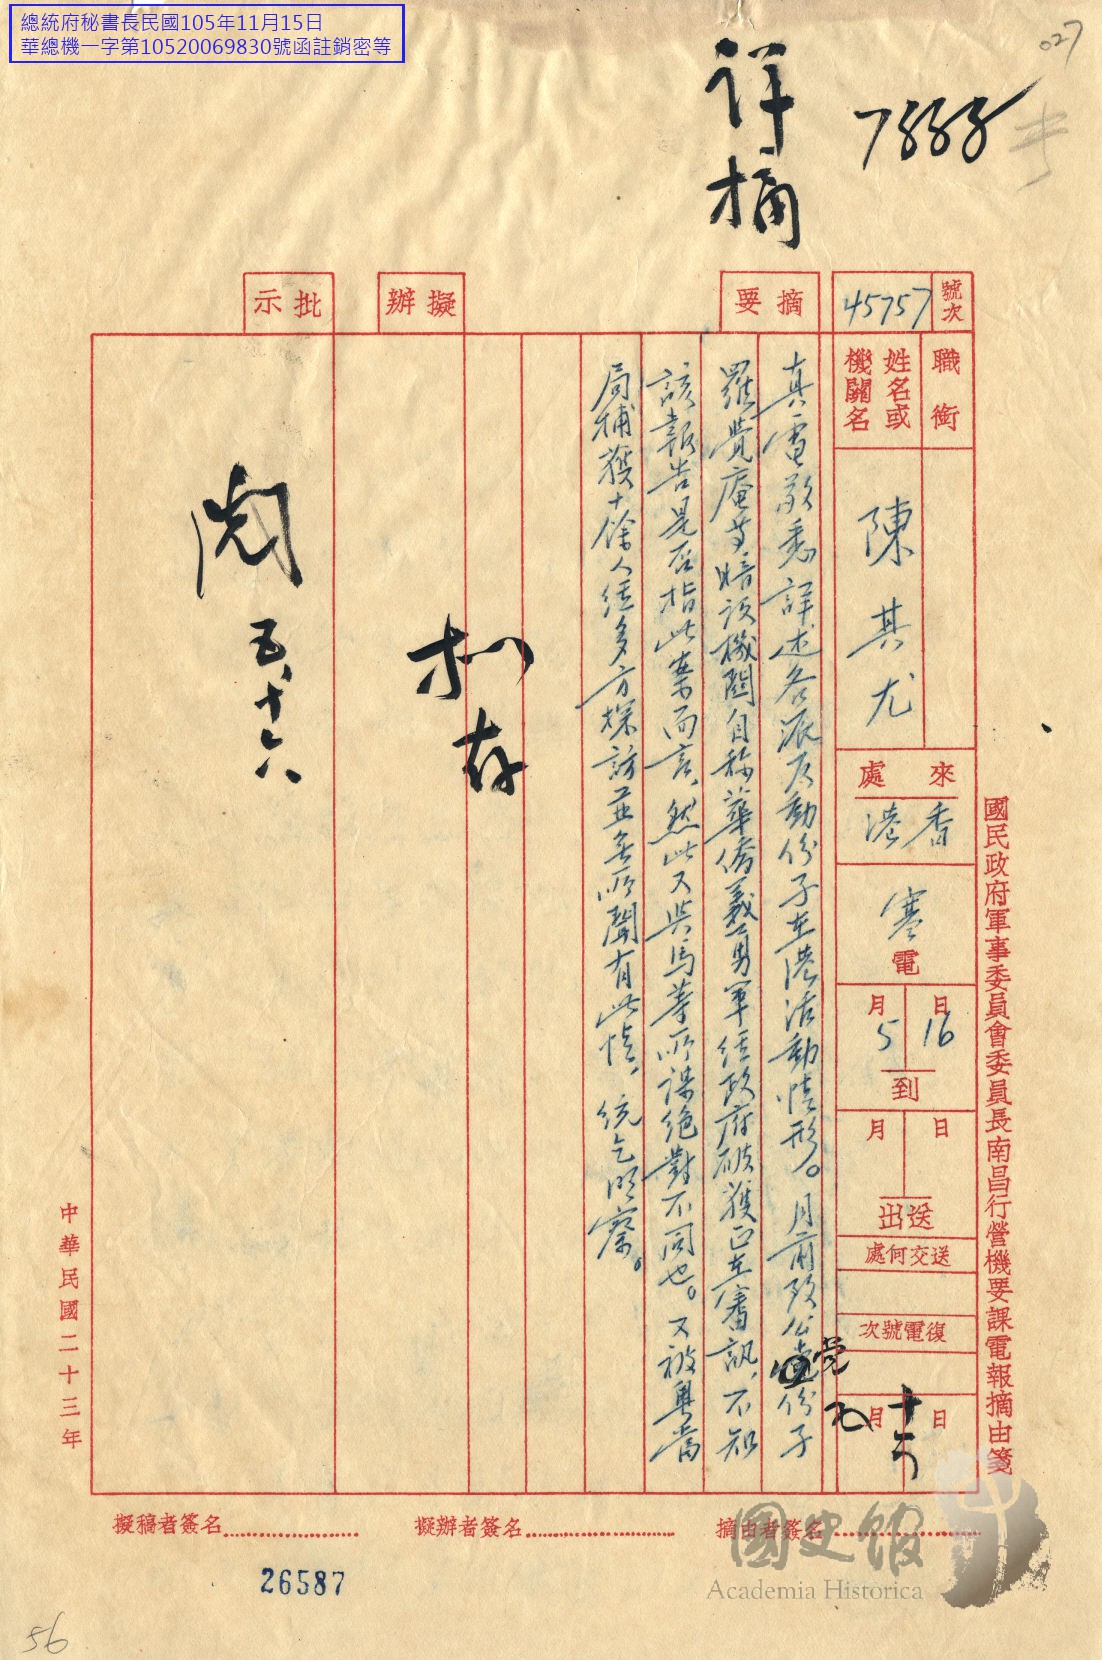 總統府秘書長民國105年11月15日
華總機一字第10520069830號函註銷密等
027
詳摘
國民政府軍事委員會委員長南昌行營機要課電報摘由箋
號次
45757
職銜
姓名或
機關名
陳其尤
來處
香港
寒電
5月16日到
月 日送出
送交何處
復電號次
五月十六日
摘要
真電敬悉詳述各派反動份子在港活動情形。月前致公黨份子
羅覺庵等暗設機關自称華僑義勇軍經政府破獲正在審訊、不知
該報告是否指此案而言、然此又與馬等所謀絕對不同也。又被粵當
局捕獲十餘人經多方探訪並無所聞有此情、統乞明察。
擬辦
擬存
批示
閱
五、十六
中華民國二十三年
摘由者簽名
擬辦者簽名
擬稿者簽名
26587
56
國史館
Academia Historica